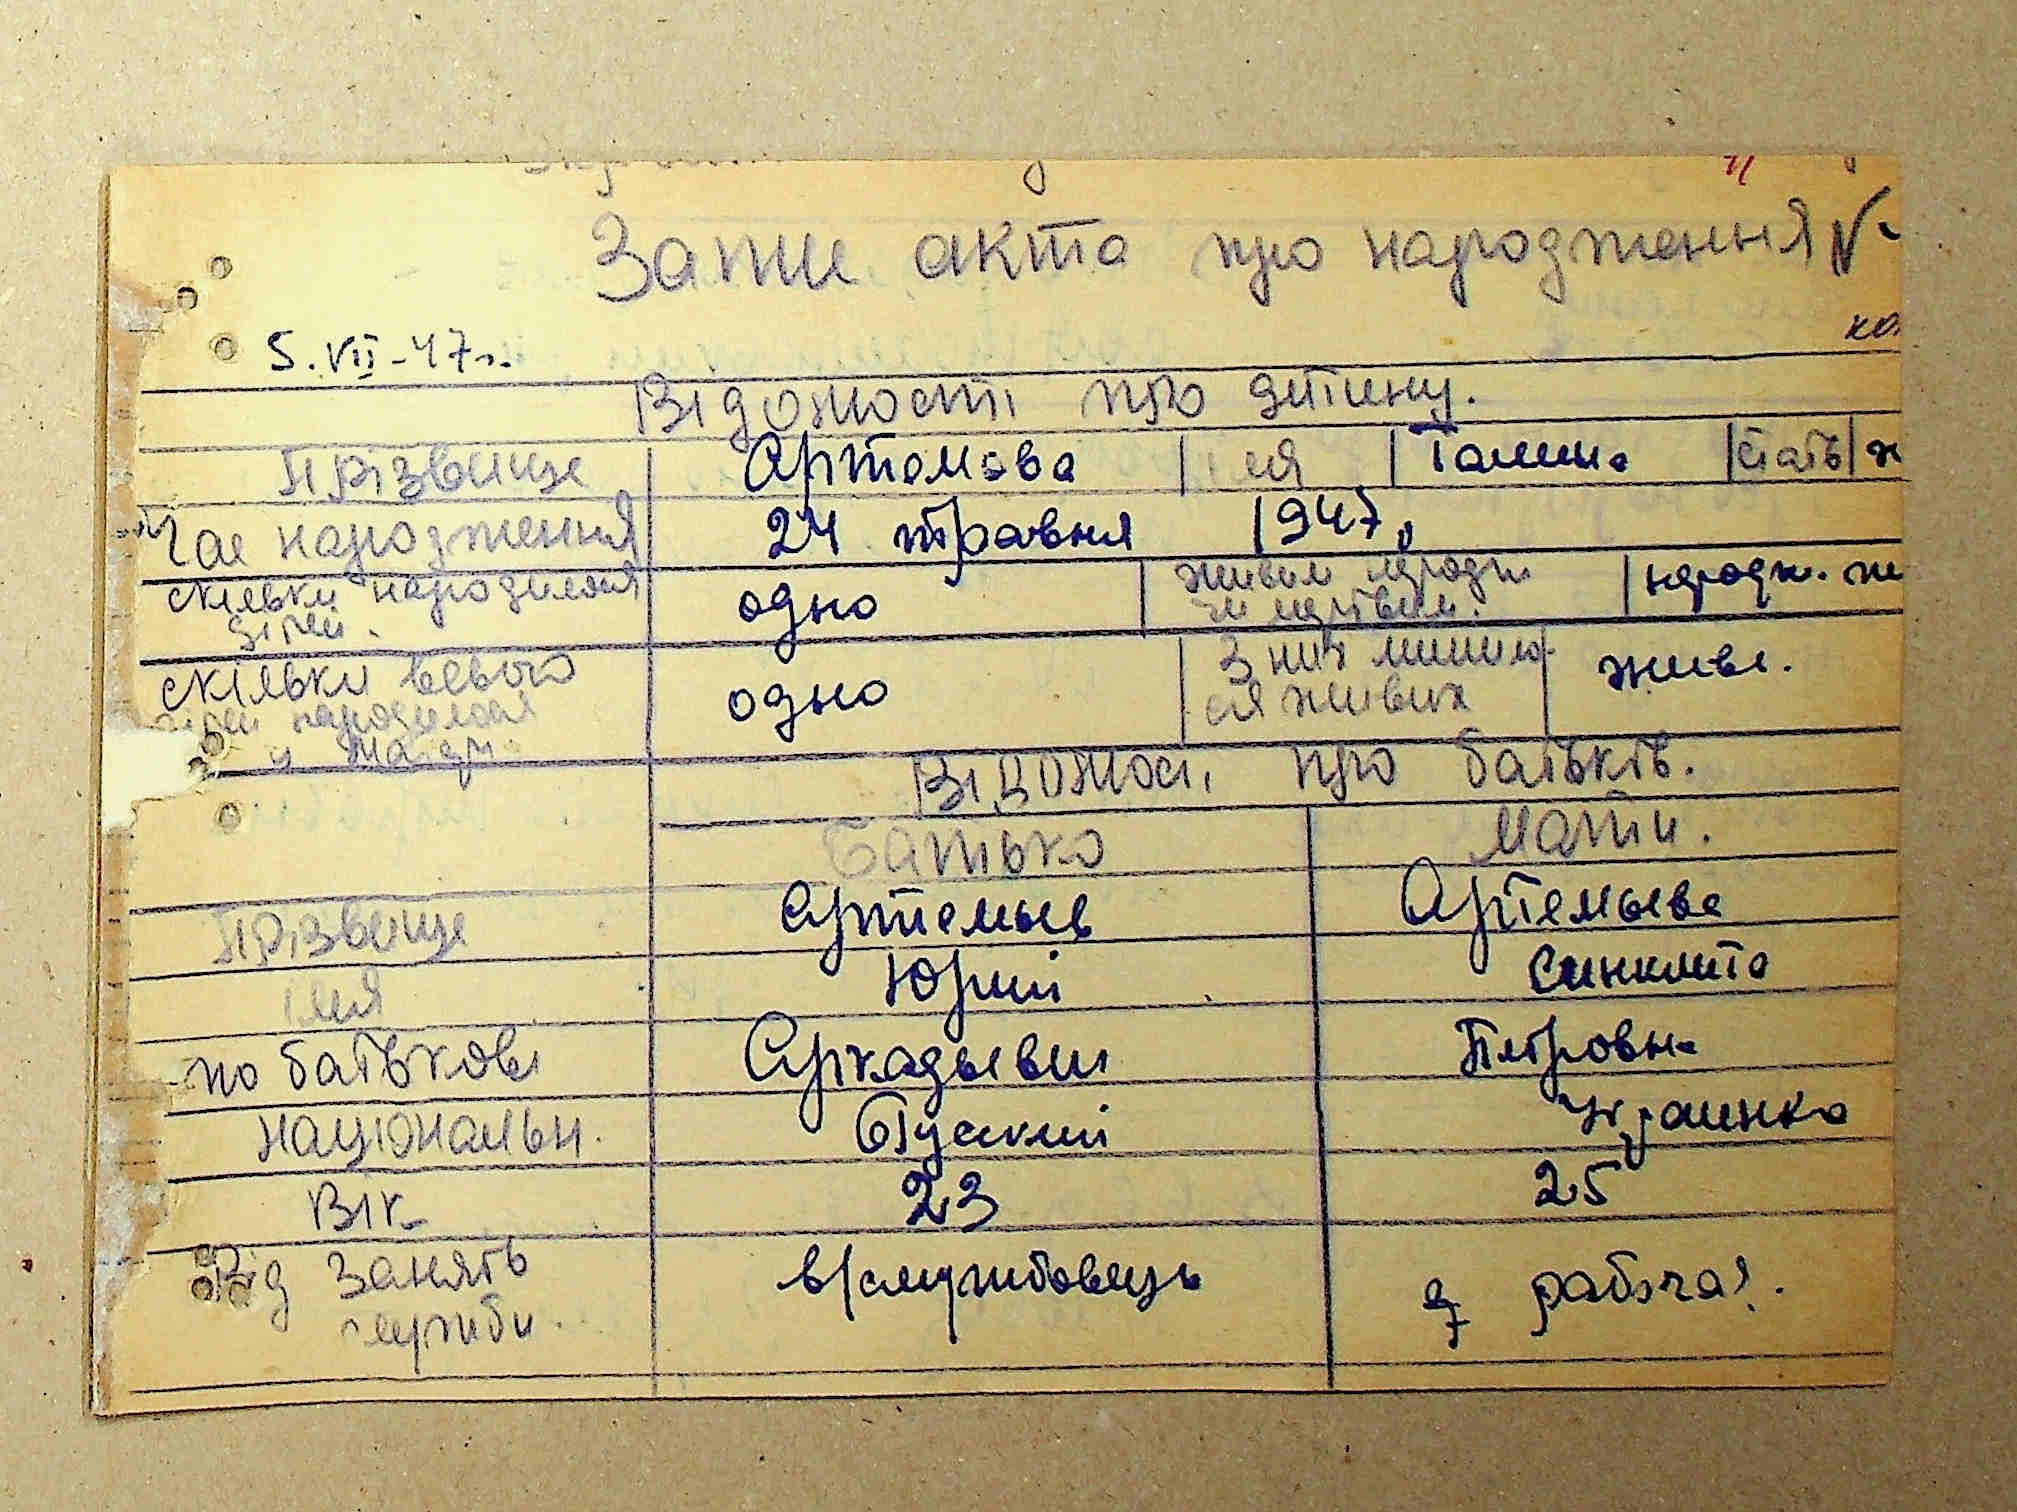 Запис акта про народження №
5.VII-47г.
Відомості про дитину.
Прізвище Артемова імя Галина стать ж
Час народження 24 травня 1947г
скільки народилося дітей. одно живим народж. чи мертвим. народж. жи
скільки всього дітей народилося у матері одно З них лишило- ся живих живе.
Відомості про батьків.
Батько Мати.
Прізвище Артемьев Артемьева
імя Юрий Синклита
по батькові Аркадьевич Петровна
національн. Русский Украинка
Вік 23 25
Рід занять служби. в/службовець рабочая.